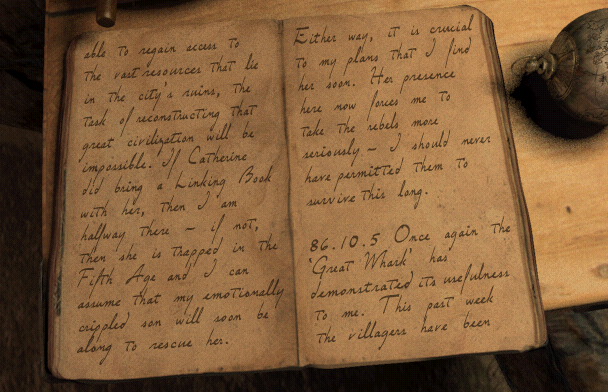 able to regain access to
the vast resources that lie
in the city's ruins, the
task of reconstructing that
great civilization will be
impossible. If Catherine
did bring a Linking Book
with her, then I am
halfway there – if not,
then she is trapped in the
Fifth Age and I can
assume that my emotionally
crippled son will soon be
along to rescue her.
Either way, it is crucial
to my plans that I find
her soon. Her presence
here now forces me to
take the rebels more
seriously – I should never
have permitted them to
survive this long.
86.10.5 Once again the
'Great Whark' has
demonstrated its usefulness
to me. This past week
the villagers have been